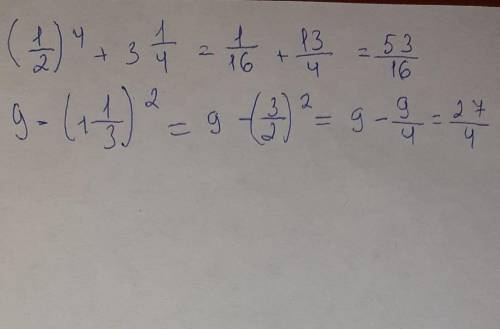 (1/2)^4 + 3 1/4 = 1/16 + 13/4 = 53/16
9 - (1 1/3)^2 = 9 - (3/2)^2 = 9 - 9/4 = 27/4